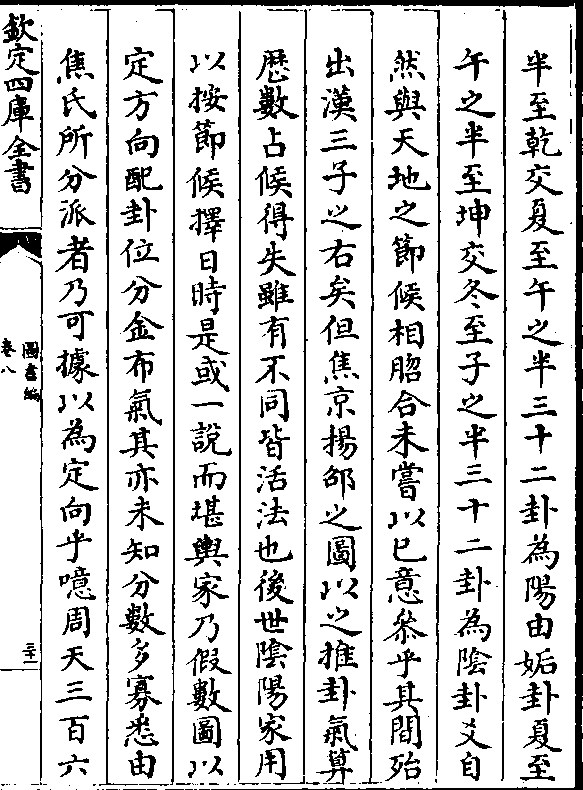 半至乾交夏至午之半三十二卦為陽由姤卦夏至
午之半至坤交冬至子之半三十二卦為陰卦爻自
然與天地之節候相脗合未嘗以已意叅乎其間殆
出漢三子之右矣但焦京揚邵之圖以之推卦氣算
歴數占候得失雖有不同皆活法也後世陰陽家用
以按節候擇日時是或一說而堪輿家乃假數圖以
定方向配卦位分金布氣其亦未知分數多寡悉由
焦氏所分派者乃可據以為定向乎噫周天三百六
欽定四庫全書
圖書編
卷八
二十一